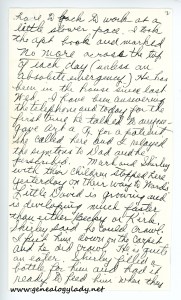 have to go back to work at a
little slower pace. I took
the apt book and marked
No more across the top
of each day (unless an
absolute emergency.) He has
been in the house since last
Wed. I have been answering
the telephone and today for the
first time he talked
gave Art a for a patient
she called here and I relayed
the symptoms to Dad and he
prescribed. Mark and Shirley
with their children stopped here
yesterday on their way to Wards.
Little David is growing and
is developing much faster
than either Becky or Kirk.
Shirley said he could crawl.
I put him down on the carpet
and he did crawl. He is quite
an eater. Shirley filled a
bottle for him and had it
ready to feed him when they
www.genealogylady.net